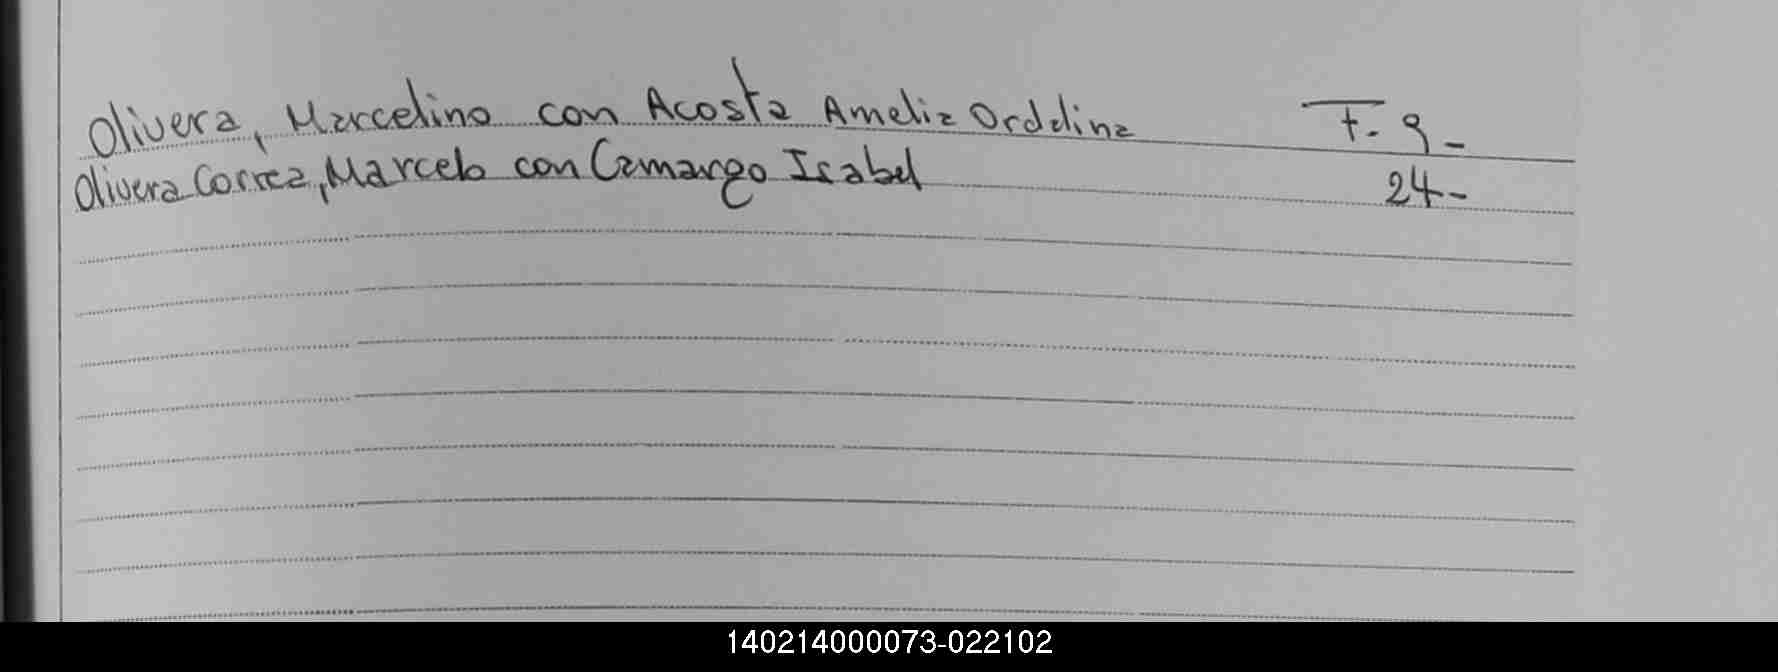 Olivera, Marcelino con Acosta Amelia Ordelina F. 9-
Olivera Correa, Marcelo con Camargo Isabel 24-
140214000073-022102